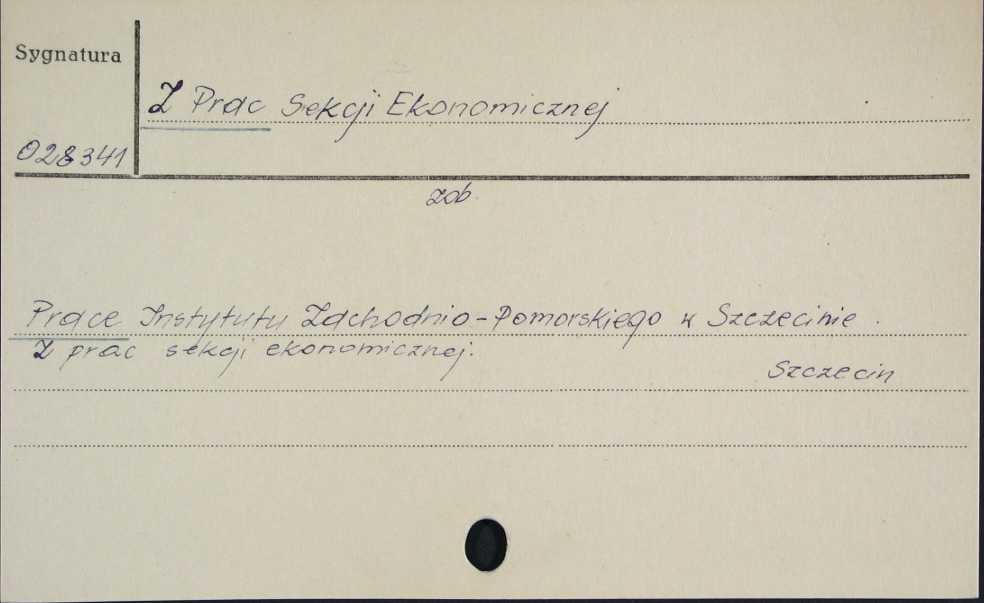 Sygnatura
Z Prac Sekcji Ekonomicznej
028341
zob.
Prace Instytutu Zachodnio-Pomorskiego w Szczecinie.
Z prac sekcji ekonomicznej.
Szczecin